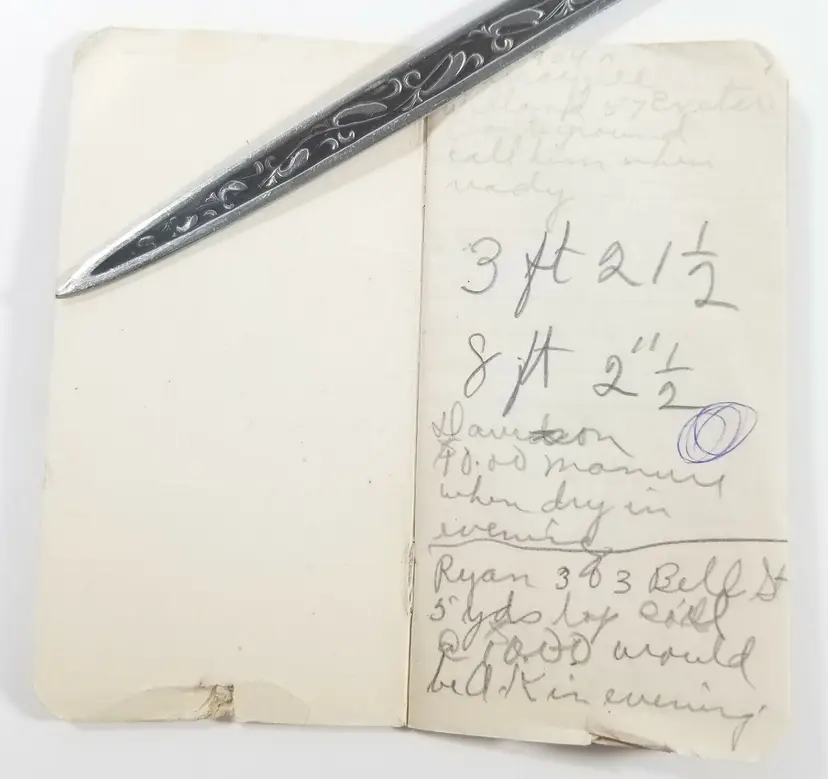 57 Exeter
ground
call him when
ready
3 ft 2 1 1/2
8 ft 2" 1/2
Davidson
40.00 manure
when dry in
evening
Ryan 383 Bell St
5 yds top soil
@ 10.00 would
be O.K in evening